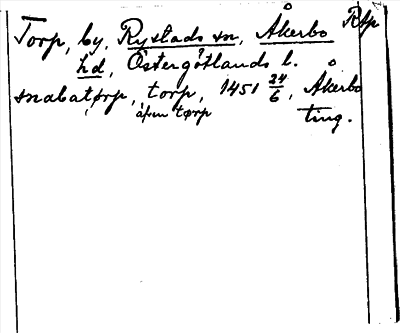 Torp, by, Rystads sn, Åkerbo Rtp
hd, Östergötlands l.
snabatørp, torp, 1451 24/6, Åkerbo
äfven tørp ting.